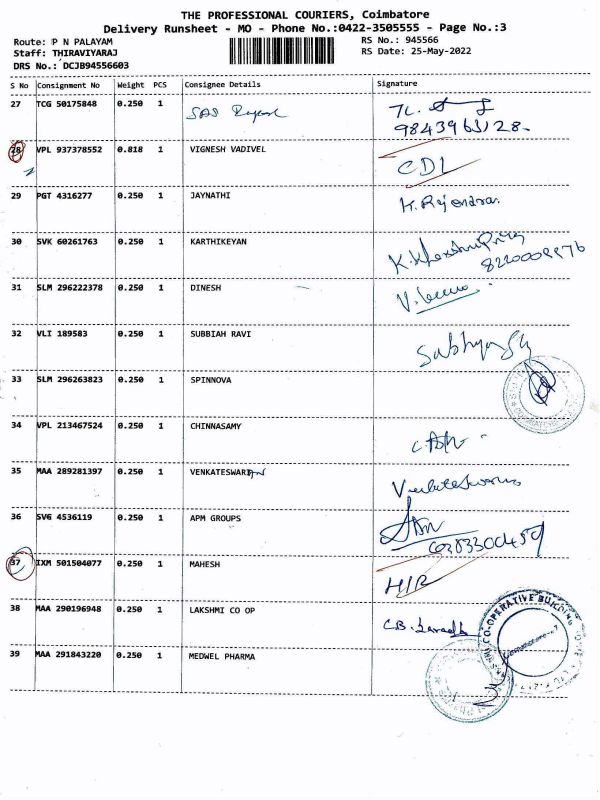 THE PROFESSIONAL COURIERS, Coimbatore
Delivery Runsheet - MO - Phone No.:0422-3505555 - Page No.:3
Route: P N PALAYAM RS No.: 945566
Staff: THIRAVIYARAJ RS Date: 25-May-2022
DRS No.: DCJB94556603
S No Consignment No Weight PCS Consignee Details Signature
27 TCG 50175848 0.250 1
9843963128
28 VPL 937378552 0.818 1 VIGNESH VADIVEL CDL
29 PGT 4316277 0.250 1 JAYNATHI K. Rajendran
30 SVK 60261763 0.250 1 KARTHIKEYAN
31 SLM 296222378 0.250 1 DINESH
32 VLI 189583 0.250 1 SUBBIAH RAVI
33 SLM 296263823 0.250 1 SPINNOVA
34 VPL 213467524 0.250 1 CHINNASAMY
35 MAA 289281397 0.250 1 VENKATESWARAN
36 SVG 4536119 0.250 1 APM GROUPS
37 IXM 501504077 0.250 1 MAHESH
38 MAA 290196948 0.250 1 LAKSHMI CO OP C.B.
CO-OPERATIVE BUILDING
39 MAA 291843220 0.250 1 MEDWEL PHARMA